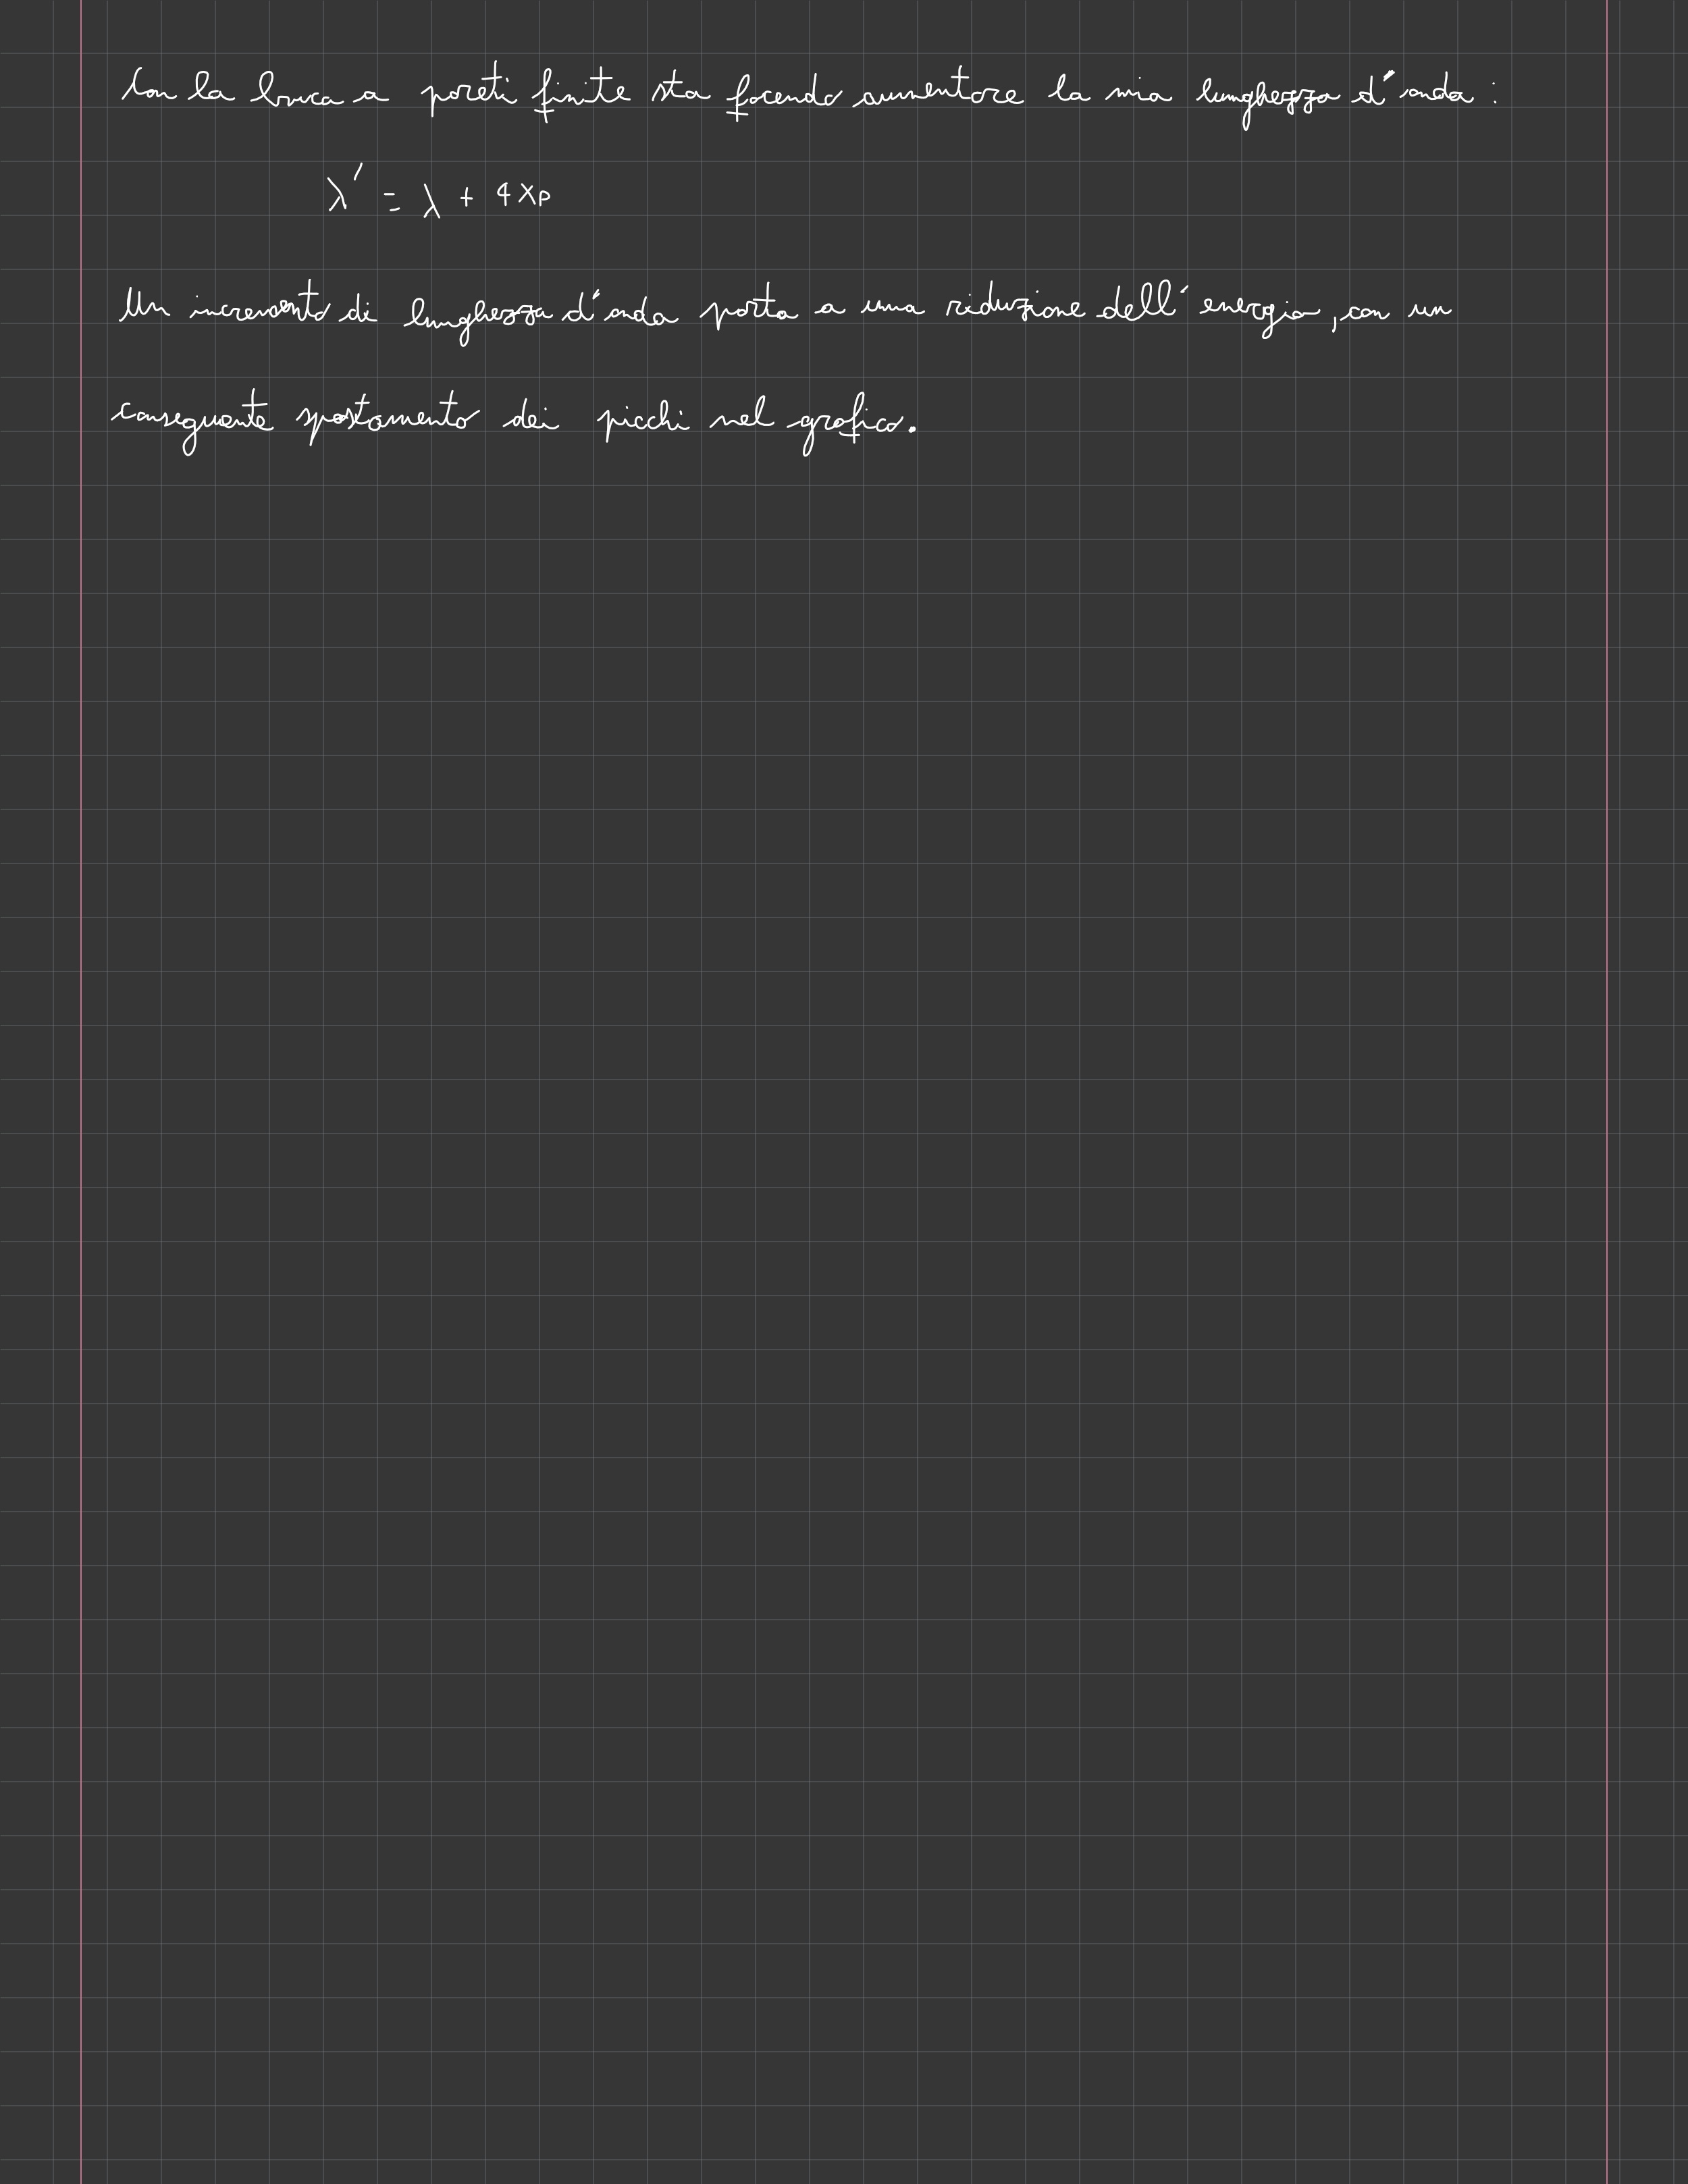 Con la buca a pareti finite sto facendo aumentare la mia lunghezza d'onda :
λ' = λ + 4xp
Un incremento di lunghezza d'onda porta a una riduzione dell'energia, con un
conseguente spostamento dei picchi nel grafico.